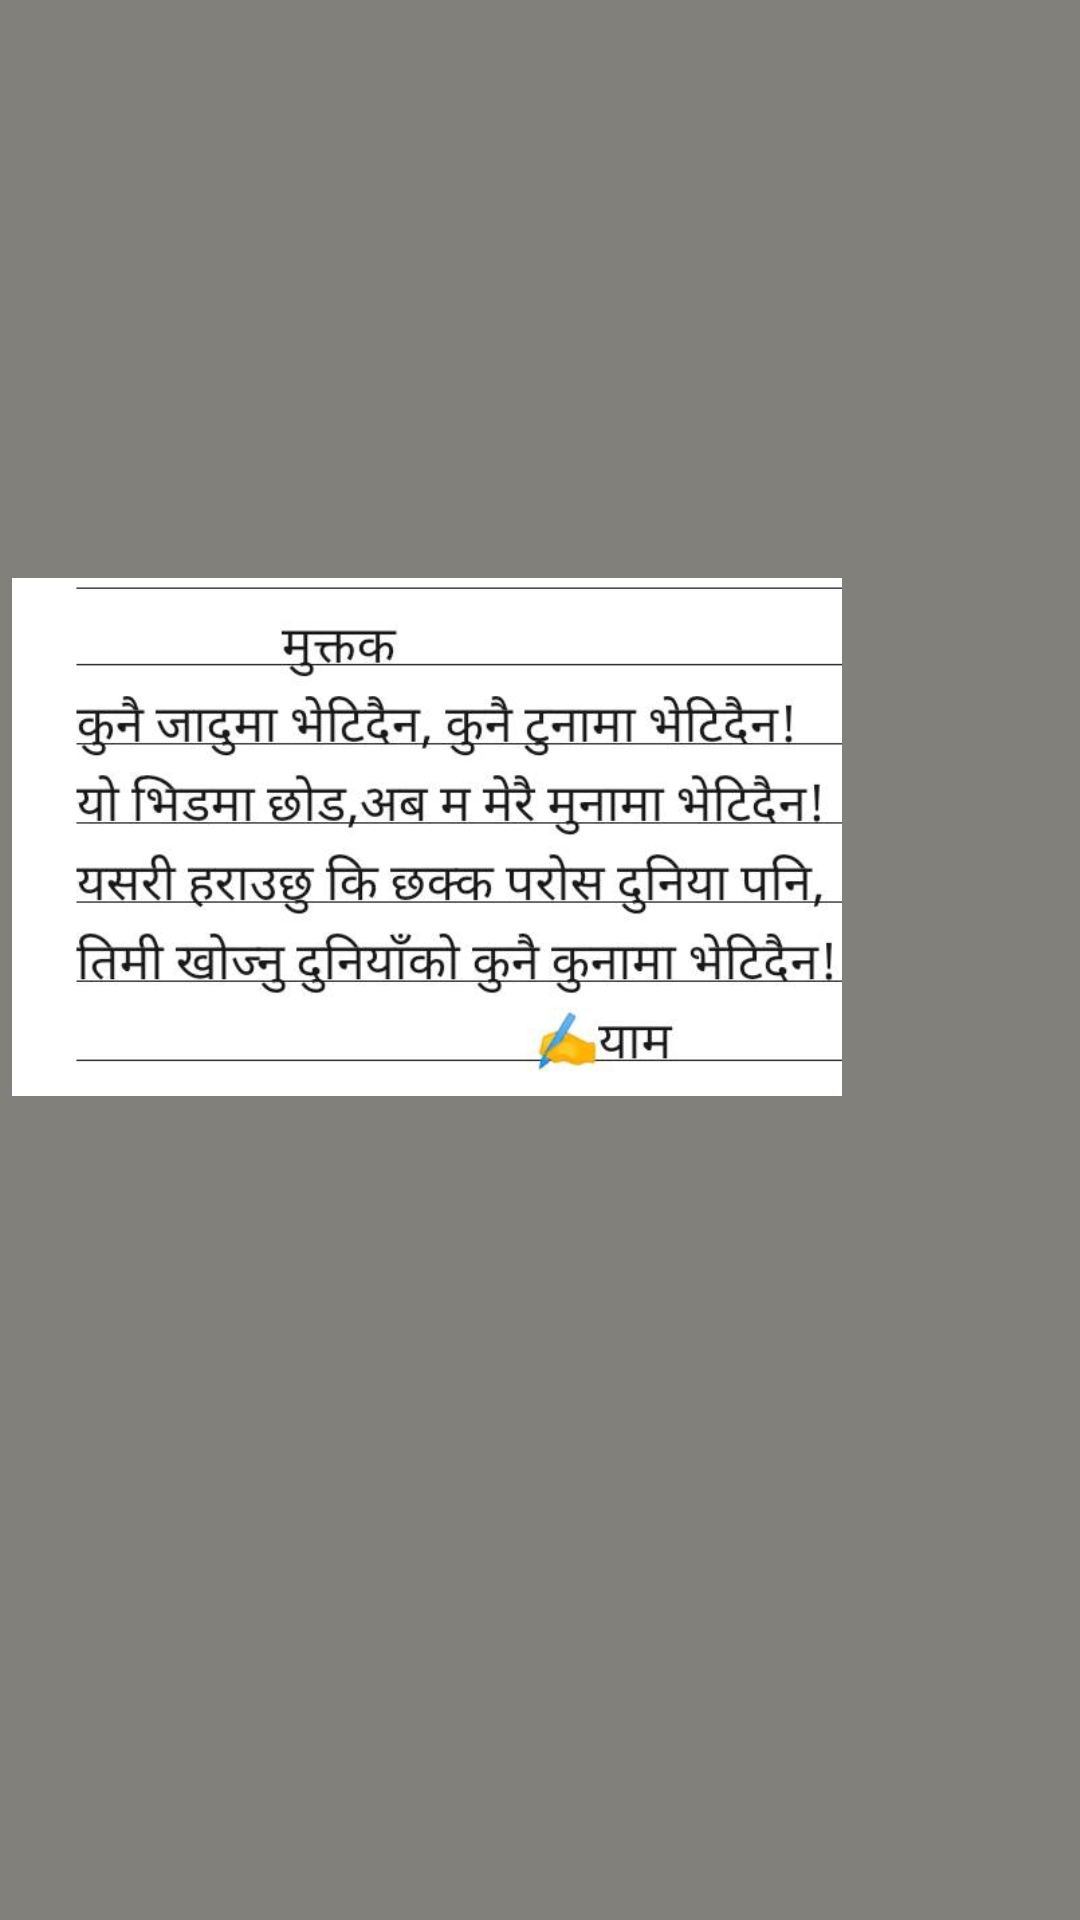 मुक्तक
कुनै जादुमा भेटिदैन, कुनै टुनामा भेटिदैन!
यो भिडमा छोड,अब म मेरै मुनामा भेटिदैन!
यसरी हराउछु कि छक्क परोस दुनिया पनि,
तिमी खोज्नु दुनियाँको कुनै कुनामा भेटिदैन!
✍️याम